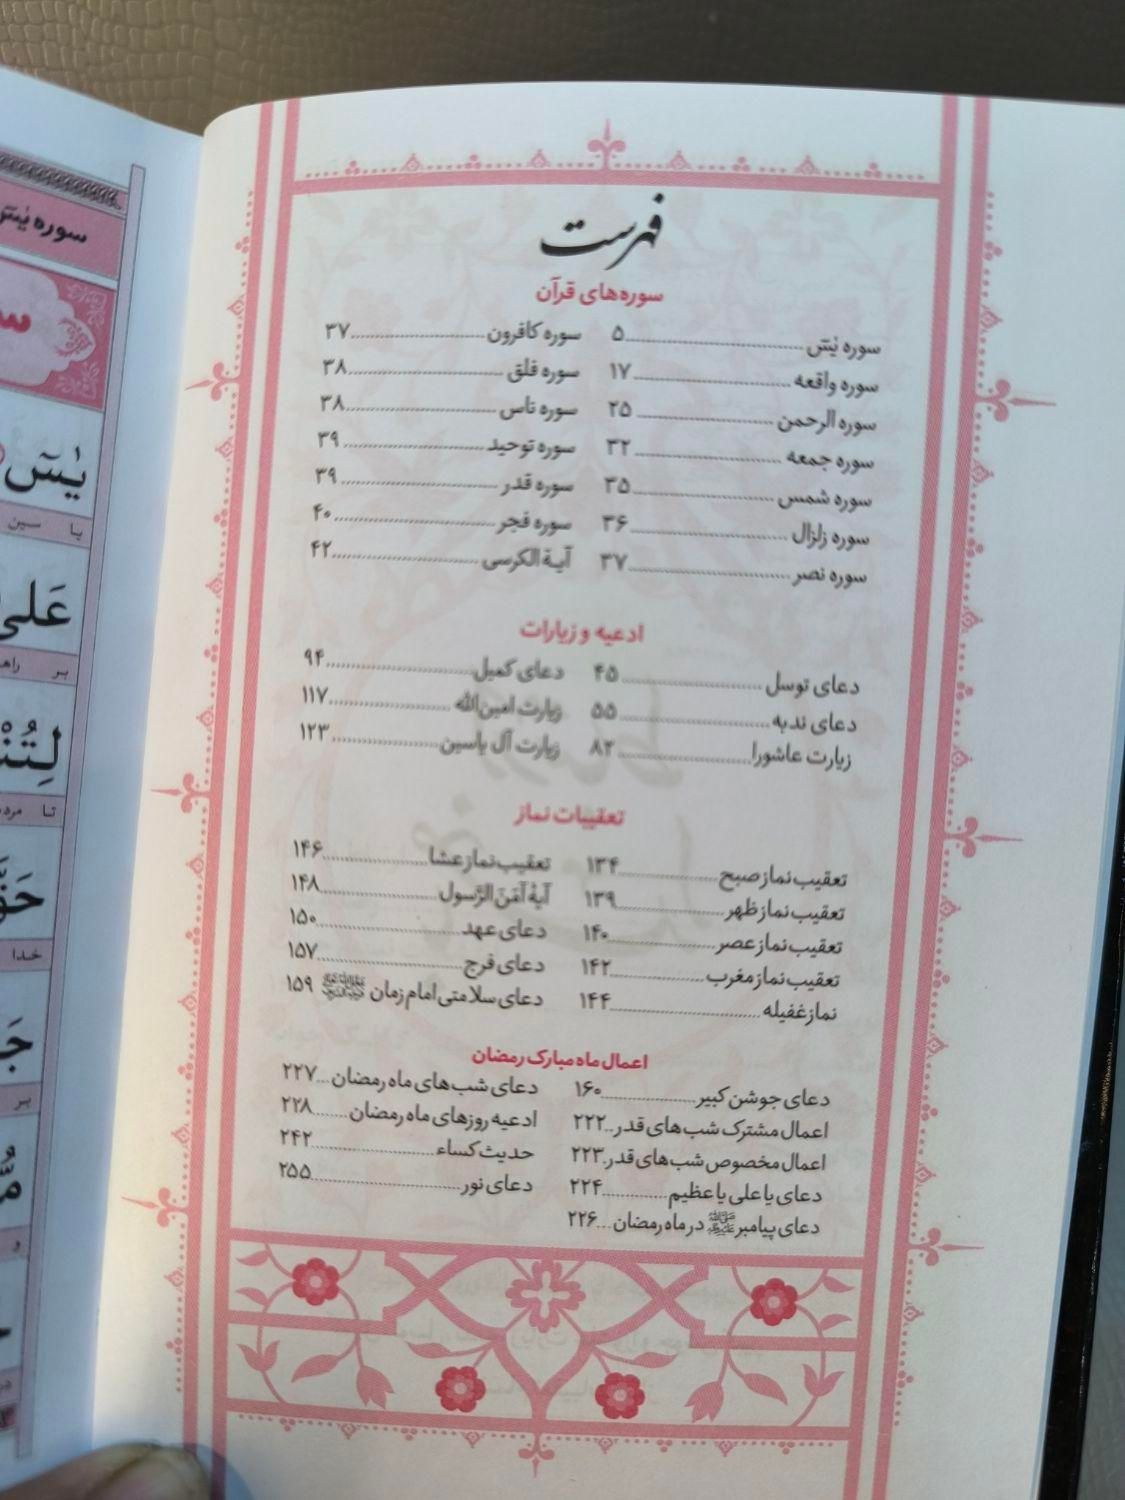 فهرست
سوره‌های قرآن
سوره یٰسٓ ۵
سوره واقعه ۱۷
سوره الرحمن ۲۵
سوره جمعه ۳۲
سوره شمس ۳۵
سوره زلزال ۳۶
سوره نصر ۳۷
سوره کافرون ۳۷
سوره فلق ۳۸
سوره ناس ۳۸
سوره توحید ۳۹
سوره قدر ۳۹
سوره فجر ۴۰
آیة الکرسی ۴۲
ادعیه و زیارات
دعای توسل ۴۵
دعای ندبه ۵۵
زیارت عاشورا ۸۲
دعای کمیل ۹۴
زیارت امین‌الله ۱۱۷
زیارت آل یاسین ۱۲۳
تعقیبات نماز
تعقیب نماز صبح ۱۳۴
تعقیب نماز ظهر ۱۳۹
تعقیب نماز عصر ۱۴۰
تعقیب نماز مغرب ۱۴۲
نماز غفیله ۱۴۴
تعقیب نماز عشا ۱۴۶
آیهٔ آمَنَ الرَّسول ۱۴۸
دعای عهد ۱۵۰
دعای فرج ۱۵۷
دعای سلامتی امام زمان ۱۵۹
اعمال ماه مبارک رمضان
دعای جوشن کبیر ۱۶۰
اعمال مشترک شب‌های قدر ۲۲۲
اعمال مخصوص شب‌های قدر ۲۲۳
دعای یا علی یا عظیم ۲۲۴
دعای پیامبر ﷺ در ماه رمضان ۲۲۶
دعای شب‌های ماه رمضان ۲۲۷
ادعیه روزهای ماه رمضان ۲۲۸
حدیث کساء ۲۴۲
دعای نور ۲۵۵
سوره یٰسٓ
یٰسٓ
یا سین
عَلیٰ
بر
لِتُنْ
تا
خدا
بر
و